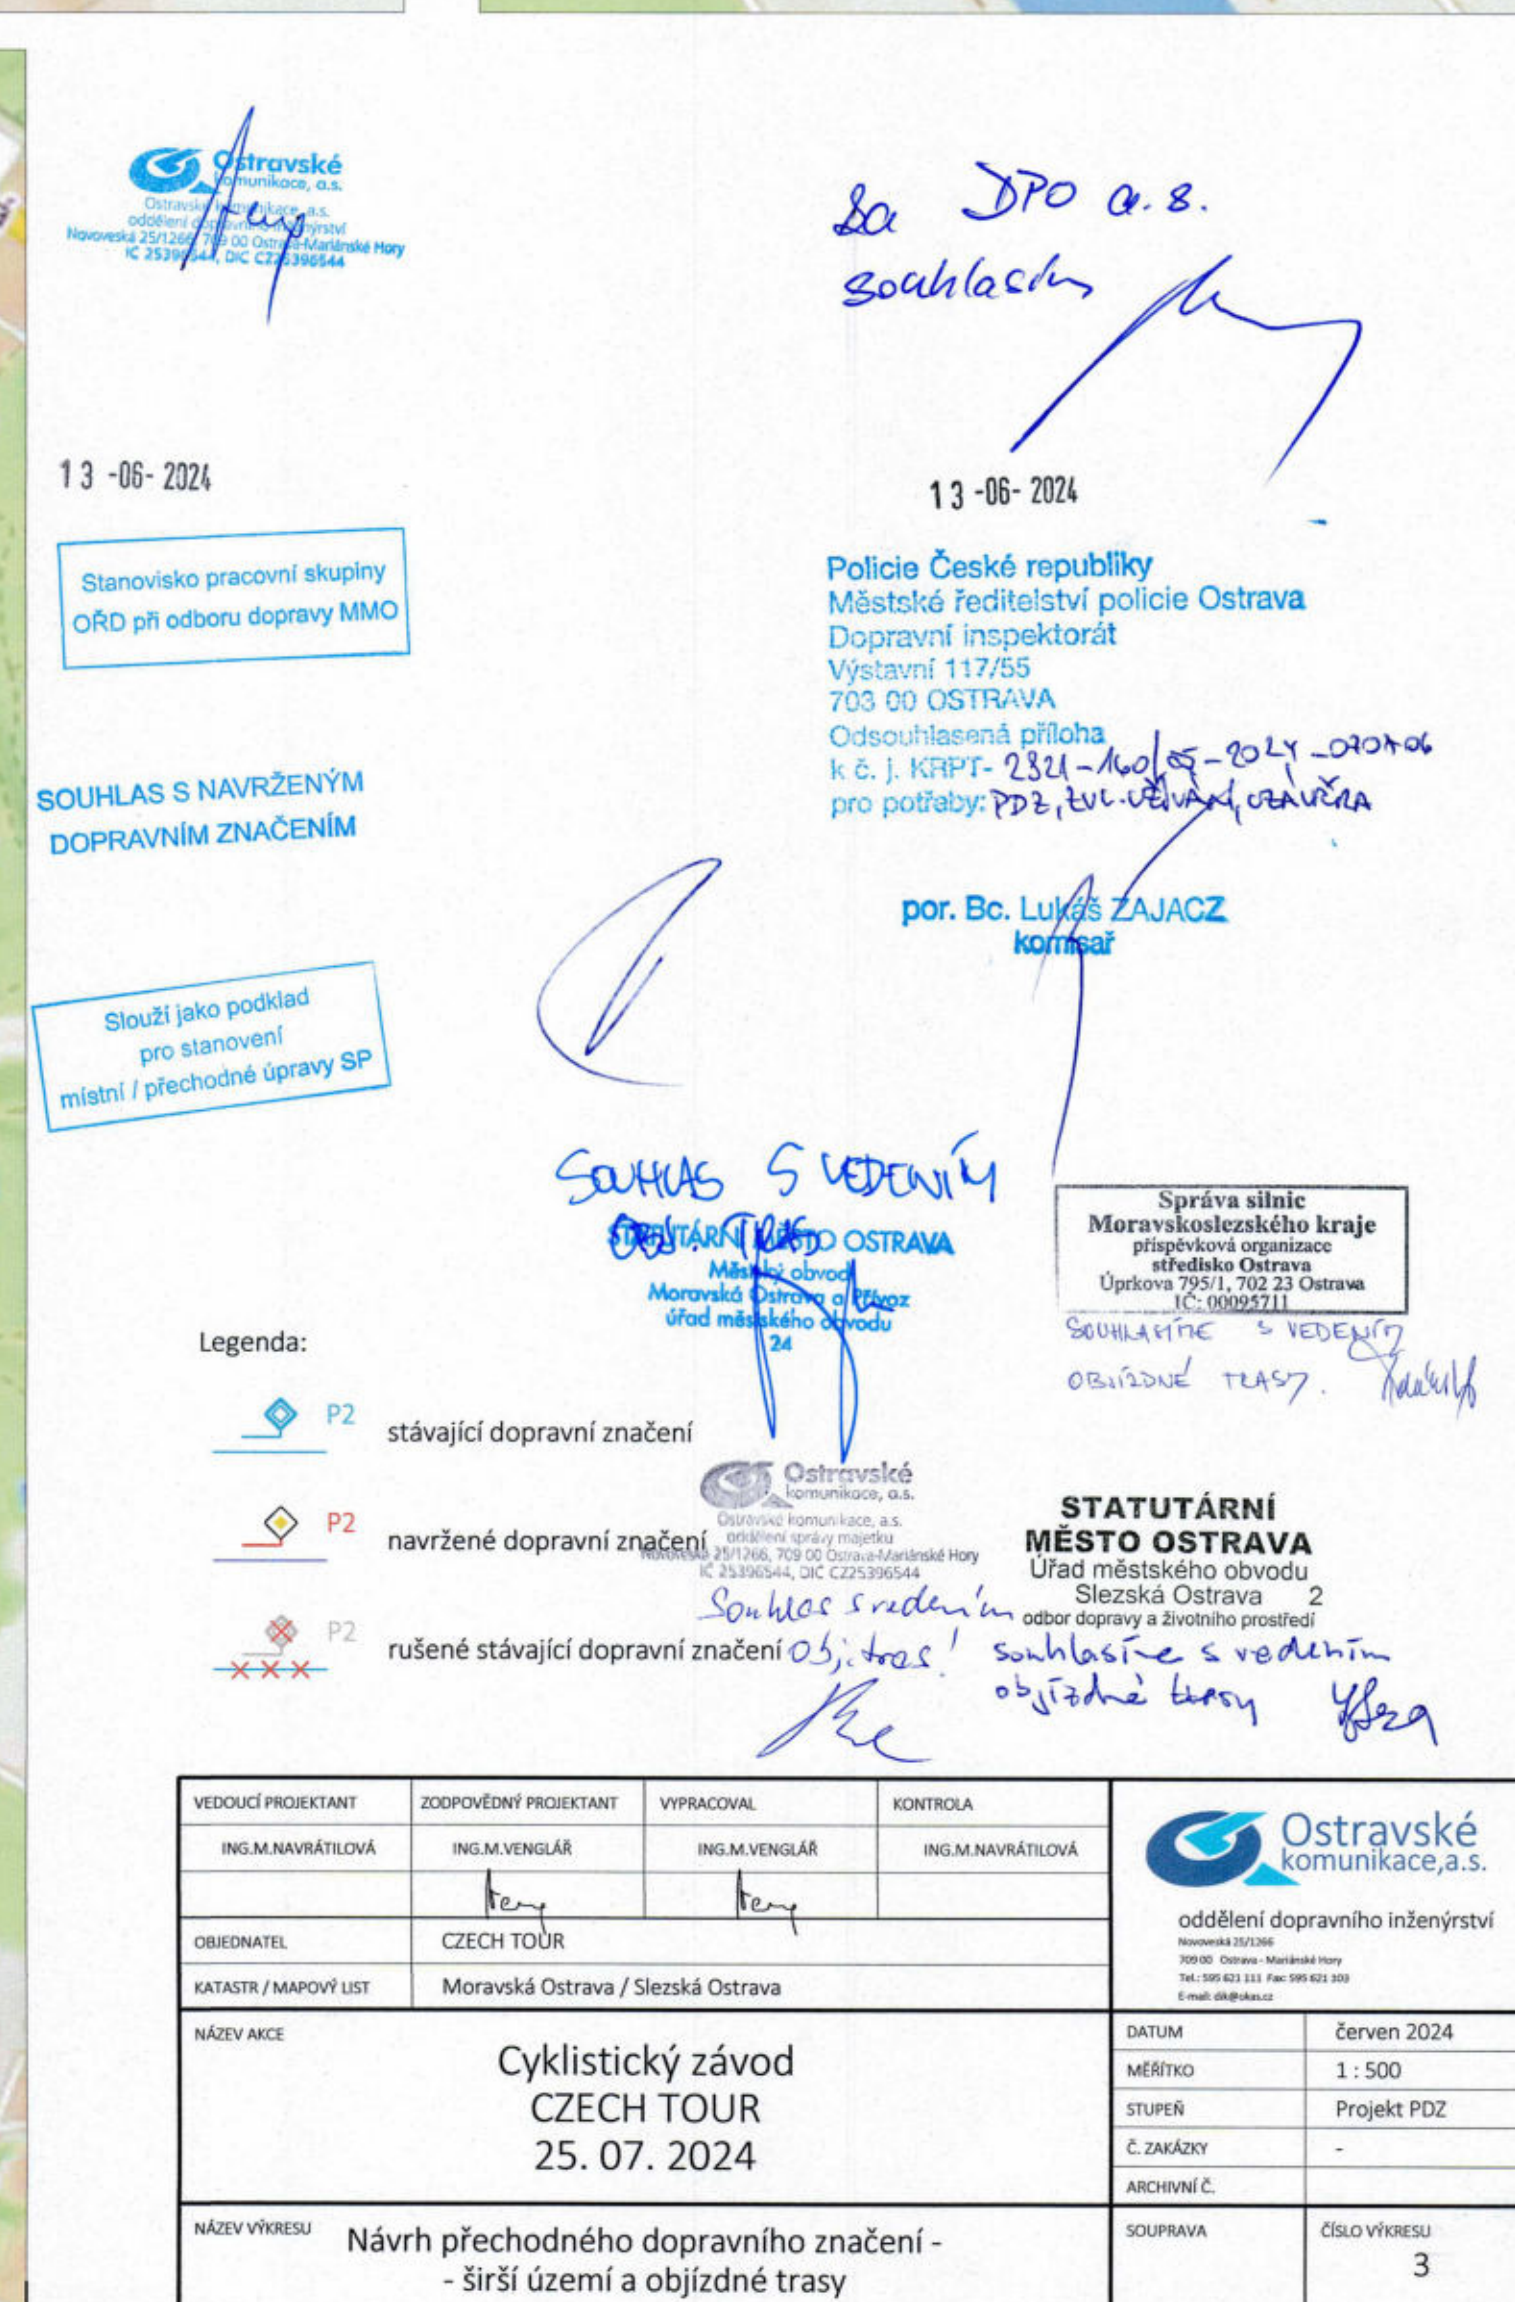 Ostravské
komunikace, a.s.
Ostravské komunikace, a.s.
oddělení dopravního inženýrství
Novoveská 25/1266, 709 00 Ostrava-Mariánské Hory
IČ 25396544, DIČ CZ25396544
za DPO a.s.
souhlasím
13 -06- 2024
13 -06- 2024
Stanovisko pracovní skupiny
OŘD při odboru dopravy MMO
Policie České republiky
Městské ředitelství policie Ostrava
Dopravní inspektorát
Výstavní 117/55
703 00 OSTRAVA
Odsouhlasená příloha
k č. j. KRPT-
pro potřeby: PDZ, ZVL. UŽÍVÁNÍ, UZÁVĚRA
SOUHLAS S NAVRŽENÝM
DOPRAVNÍM ZNAČENÍM
por. Bc. Lukáš ZAJACZ
komisař
Slouží jako podklad
pro stanovení
místní / přechodné úpravy SP
SOUHLAS S VEDENÍM
OBJ. TRAS
STATUTÁRNÍ MĚSTO OSTRAVA
Městský obvod
Moravská Ostrava a Přívoz
úřad městského obvodu
24
Správa silnic
Moravskoslezského kraje
příspěvková organizace
středisko Ostrava
Úprkova 795/1, 702 23 Ostrava
IČ: 00095711
SOUHLASÍME S VEDENÍM
OBJÍZDNÉ TRASY.
Legenda:
P2 stávající dopravní značení
P2 navržené dopravní značení
P2 rušené stávající dopravní značení
Ostravské
komunikace, a.s.
Ostravské komunikace, a.s.
oddělení správy majetku
Novoveská 25/1266, 709 00 Ostrava-Mariánské Hory
IČ 25396544, DIČ CZ25396544
Souhlas s vedením
obj. tras!
STATUTÁRNÍ
MĚSTO OSTRAVA
Úřad městského obvodu
Slezská Ostrava 2
odbor dopravy a životního prostředí
souhlasíme s vedením
objízdné trasy
VEDOUCÍ PROJEKTANT ZODPOVĚDNÝ PROJEKTANT VYPRACOVAL KONTROLA
ING.M.NAVRÁTILOVÁ ING.M.VENGLÁŘ ING.M.VENGLÁŘ ING.M.NAVRÁTILOVÁ
OBJEDNATEL CZECH TOUR
KATASTR / MAPOVÝ LIST Moravská Ostrava / Slezská Ostrava
Ostravské
komunikace,a.s.
oddělení dopravního inženýrství
Novoveská 25/1266
709 00 Ostrava - Mariánské Hory
Tel.: 595 621 111 Fax: 595 621 303
E-mail: dik@okas.cz
NÁZEV AKCE
Cyklistický závod
CZECH TOUR
25. 07. 2024
DATUM červen 2024
MĚŘÍTKO 1 : 500
STUPEŇ Projekt PDZ
Č. ZAKÁZKY -
ARCHIVNÍ Č.
NÁZEV VÝKRESU Návrh přechodného dopravního značení -
- širší území a objízdné trasy
SOUPRAVA ČÍSLO VÝKRESU
3